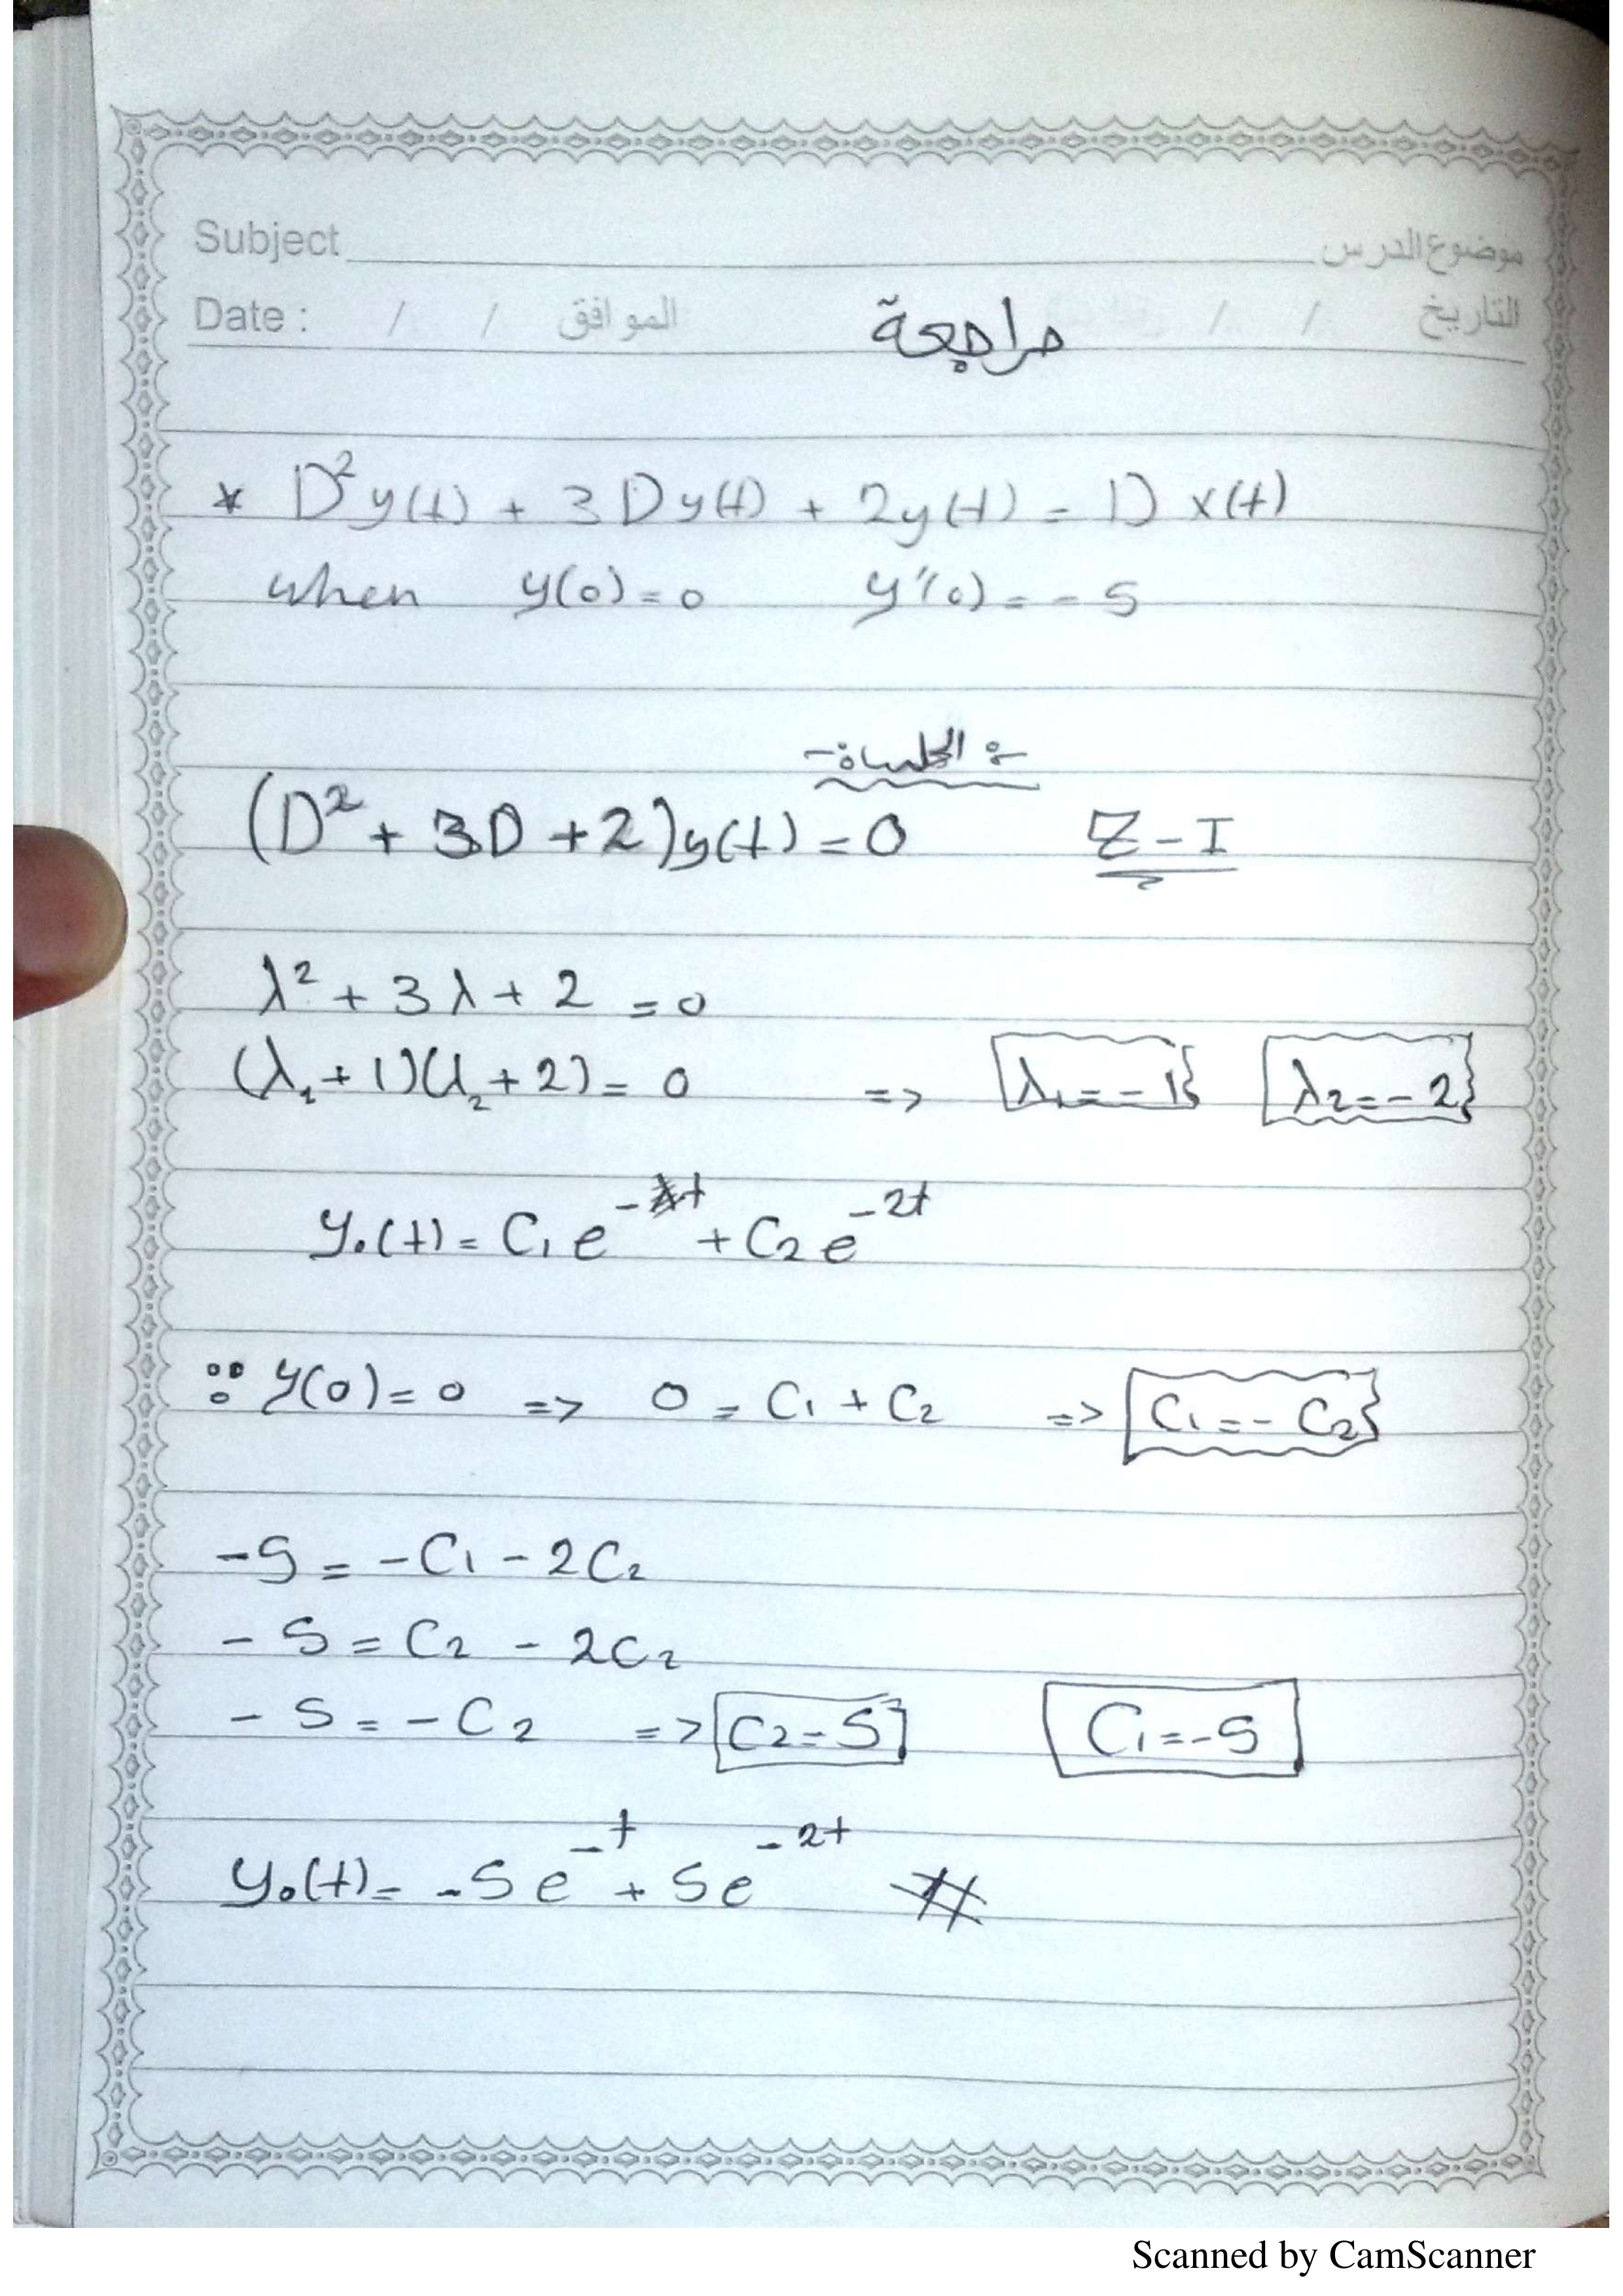 Subject موضوع الدرس
Date : / / الموافق / / التاريخ
مراجعة
* D²y(t) + 3Dy(t) + 2y(t) = D x(t)
when y(0) = 0 y'(0) = -5
(D² + 3D + 2)y(t) = 0 Z-I
λ² + 3λ + 2 = 0
(λ₁ + 1)(λ₂ + 2) = 0 => λ₁ = -1 λ₂ = -2
y₀(t) = C₁e^-t + C₂e^-2t
∵ y(0) = 0 => 0 = C₁ + C₂ => C₁ = -C₂
-5 = -C₁ - 2C₂
-5 = C₂ - 2C₂
-5 = -C₂ => C₂ = 5 C₁ = -5
y₀(t) = -5e^-t + 5e^-2t #
Scanned by CamScanner